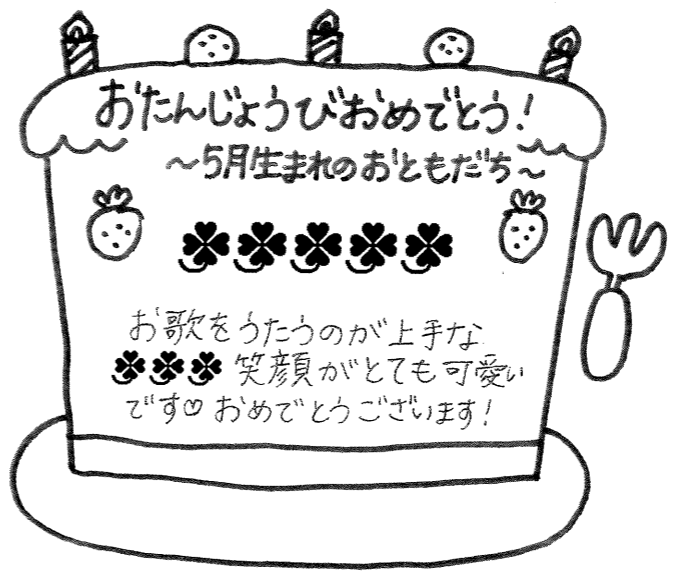 おたんじょうびおめでとう！
～5月生まれのおともだち～
お歌をうたうのが上手な
笑顔がとても可愛い
です♡おめでとうございます！